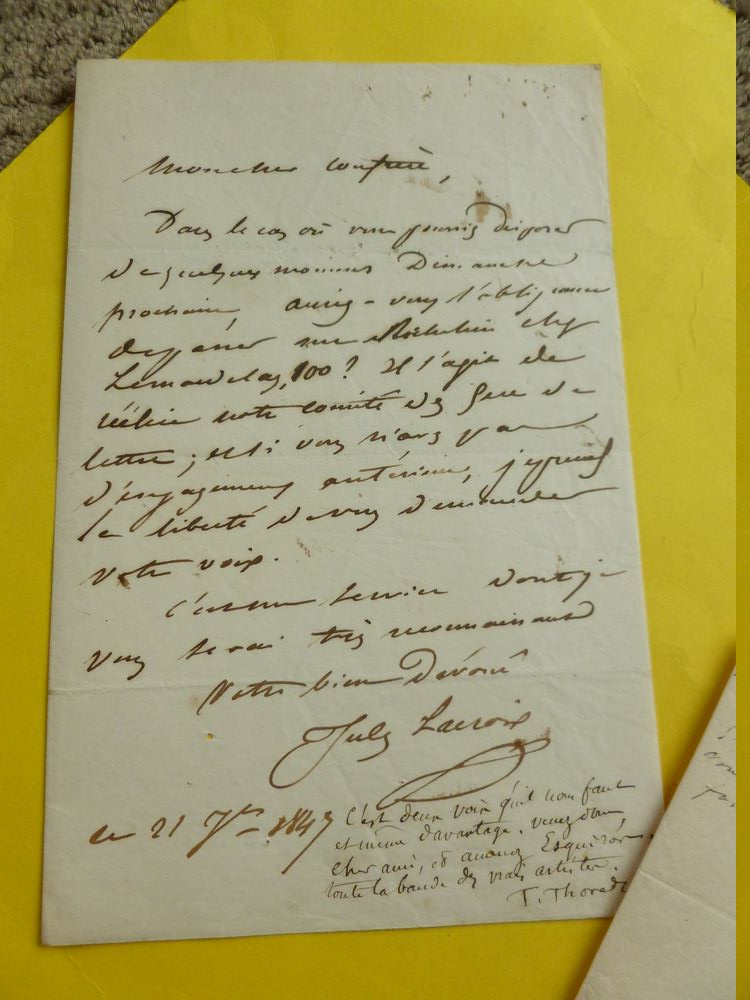 Mon cher confrère,
Dans le cas où vous pourriez disposer
de quelques moments Dimanche
prochain, auriez-vous l'obligeance
de passer rue Richelieu chez
Lemardelay, 100 ? Il s'agit de
réélire notre comité des Gens de
lettres ; et si vous n'avez pas
d'engagement antérieur, je prends
la liberté de vous demander
votre voix.
C'est un service dont je
vous serai très reconnaissant
Votre bien Dévoué
Jules Lacroix
ce 21 1847
C'est deux voix qu'il nous faut
et même davantage. venez donc,
cher ami, et amenez Esquiros
toute la bande des vrais artistes.
T. Thoré